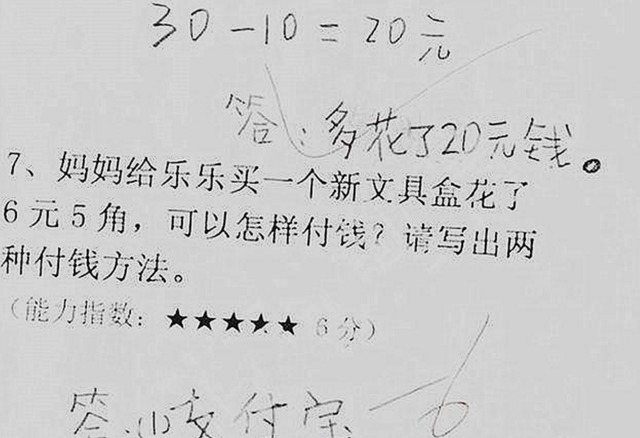 30-10=20元
答:多花了20元钱。
7、妈妈给乐乐买一个新文具盒花了
6元5角，可以怎样付钱？请写出两
种付钱方法。
（能力指数：★★★★★ 6分）
答:支付宝 -6